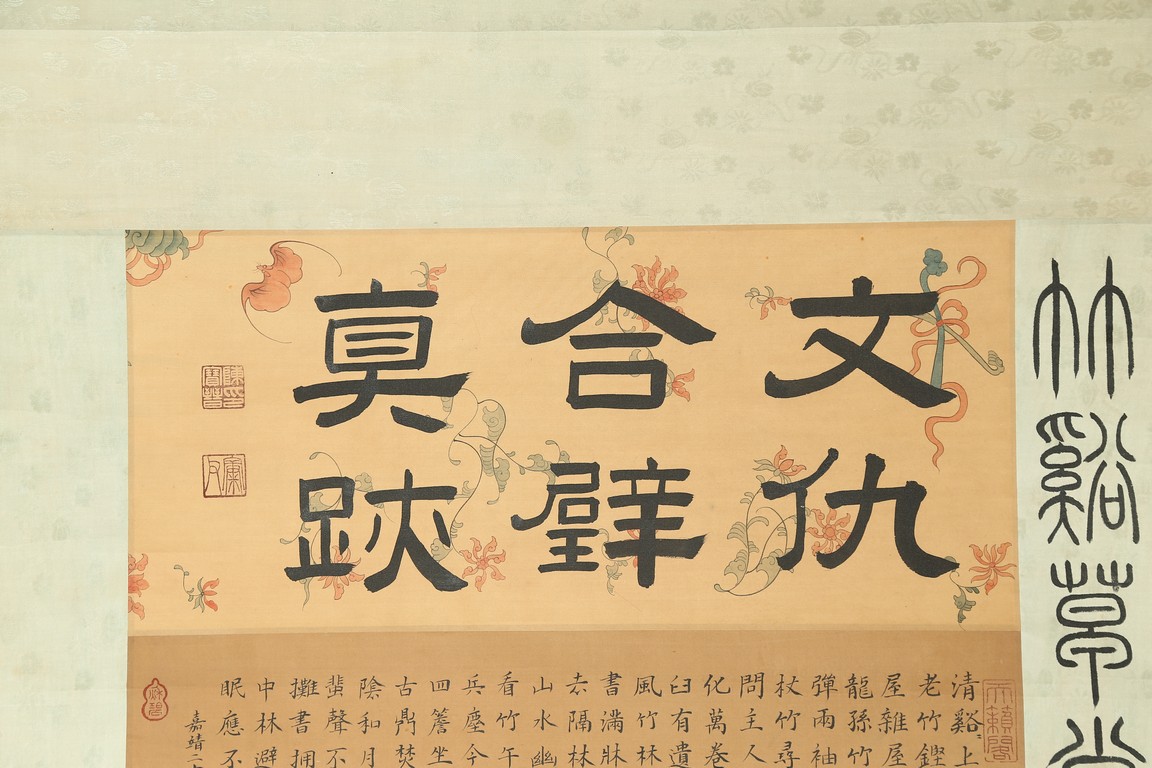 竹谿草堂
文仇
合璧
真跡
天籟閣
清谿上
老竹鏗
屋雜屋
龍孫竹
彈雨袖
杖竹尋
問主人
化萬卷
臼有遺
風竹林
書滿牀
去隔林
山水幽
看竹午
兵塵今
四簷坐
古鼎焚
陰和月
蛩聲不
攤書拥
中林避
眠應不
嘉靖二